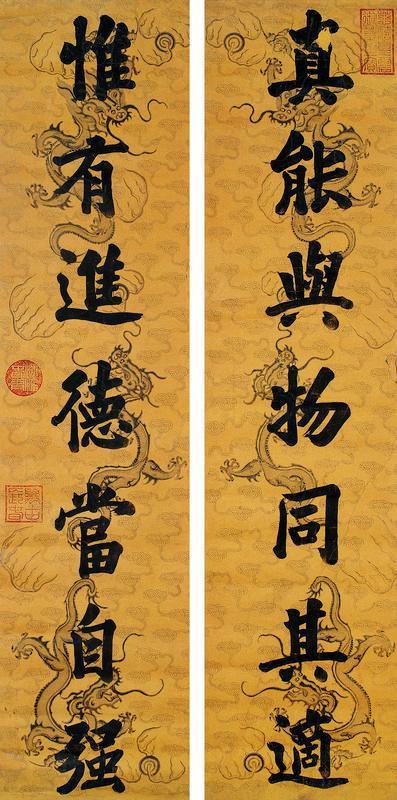 真能與物同其適
惟有進德當自强